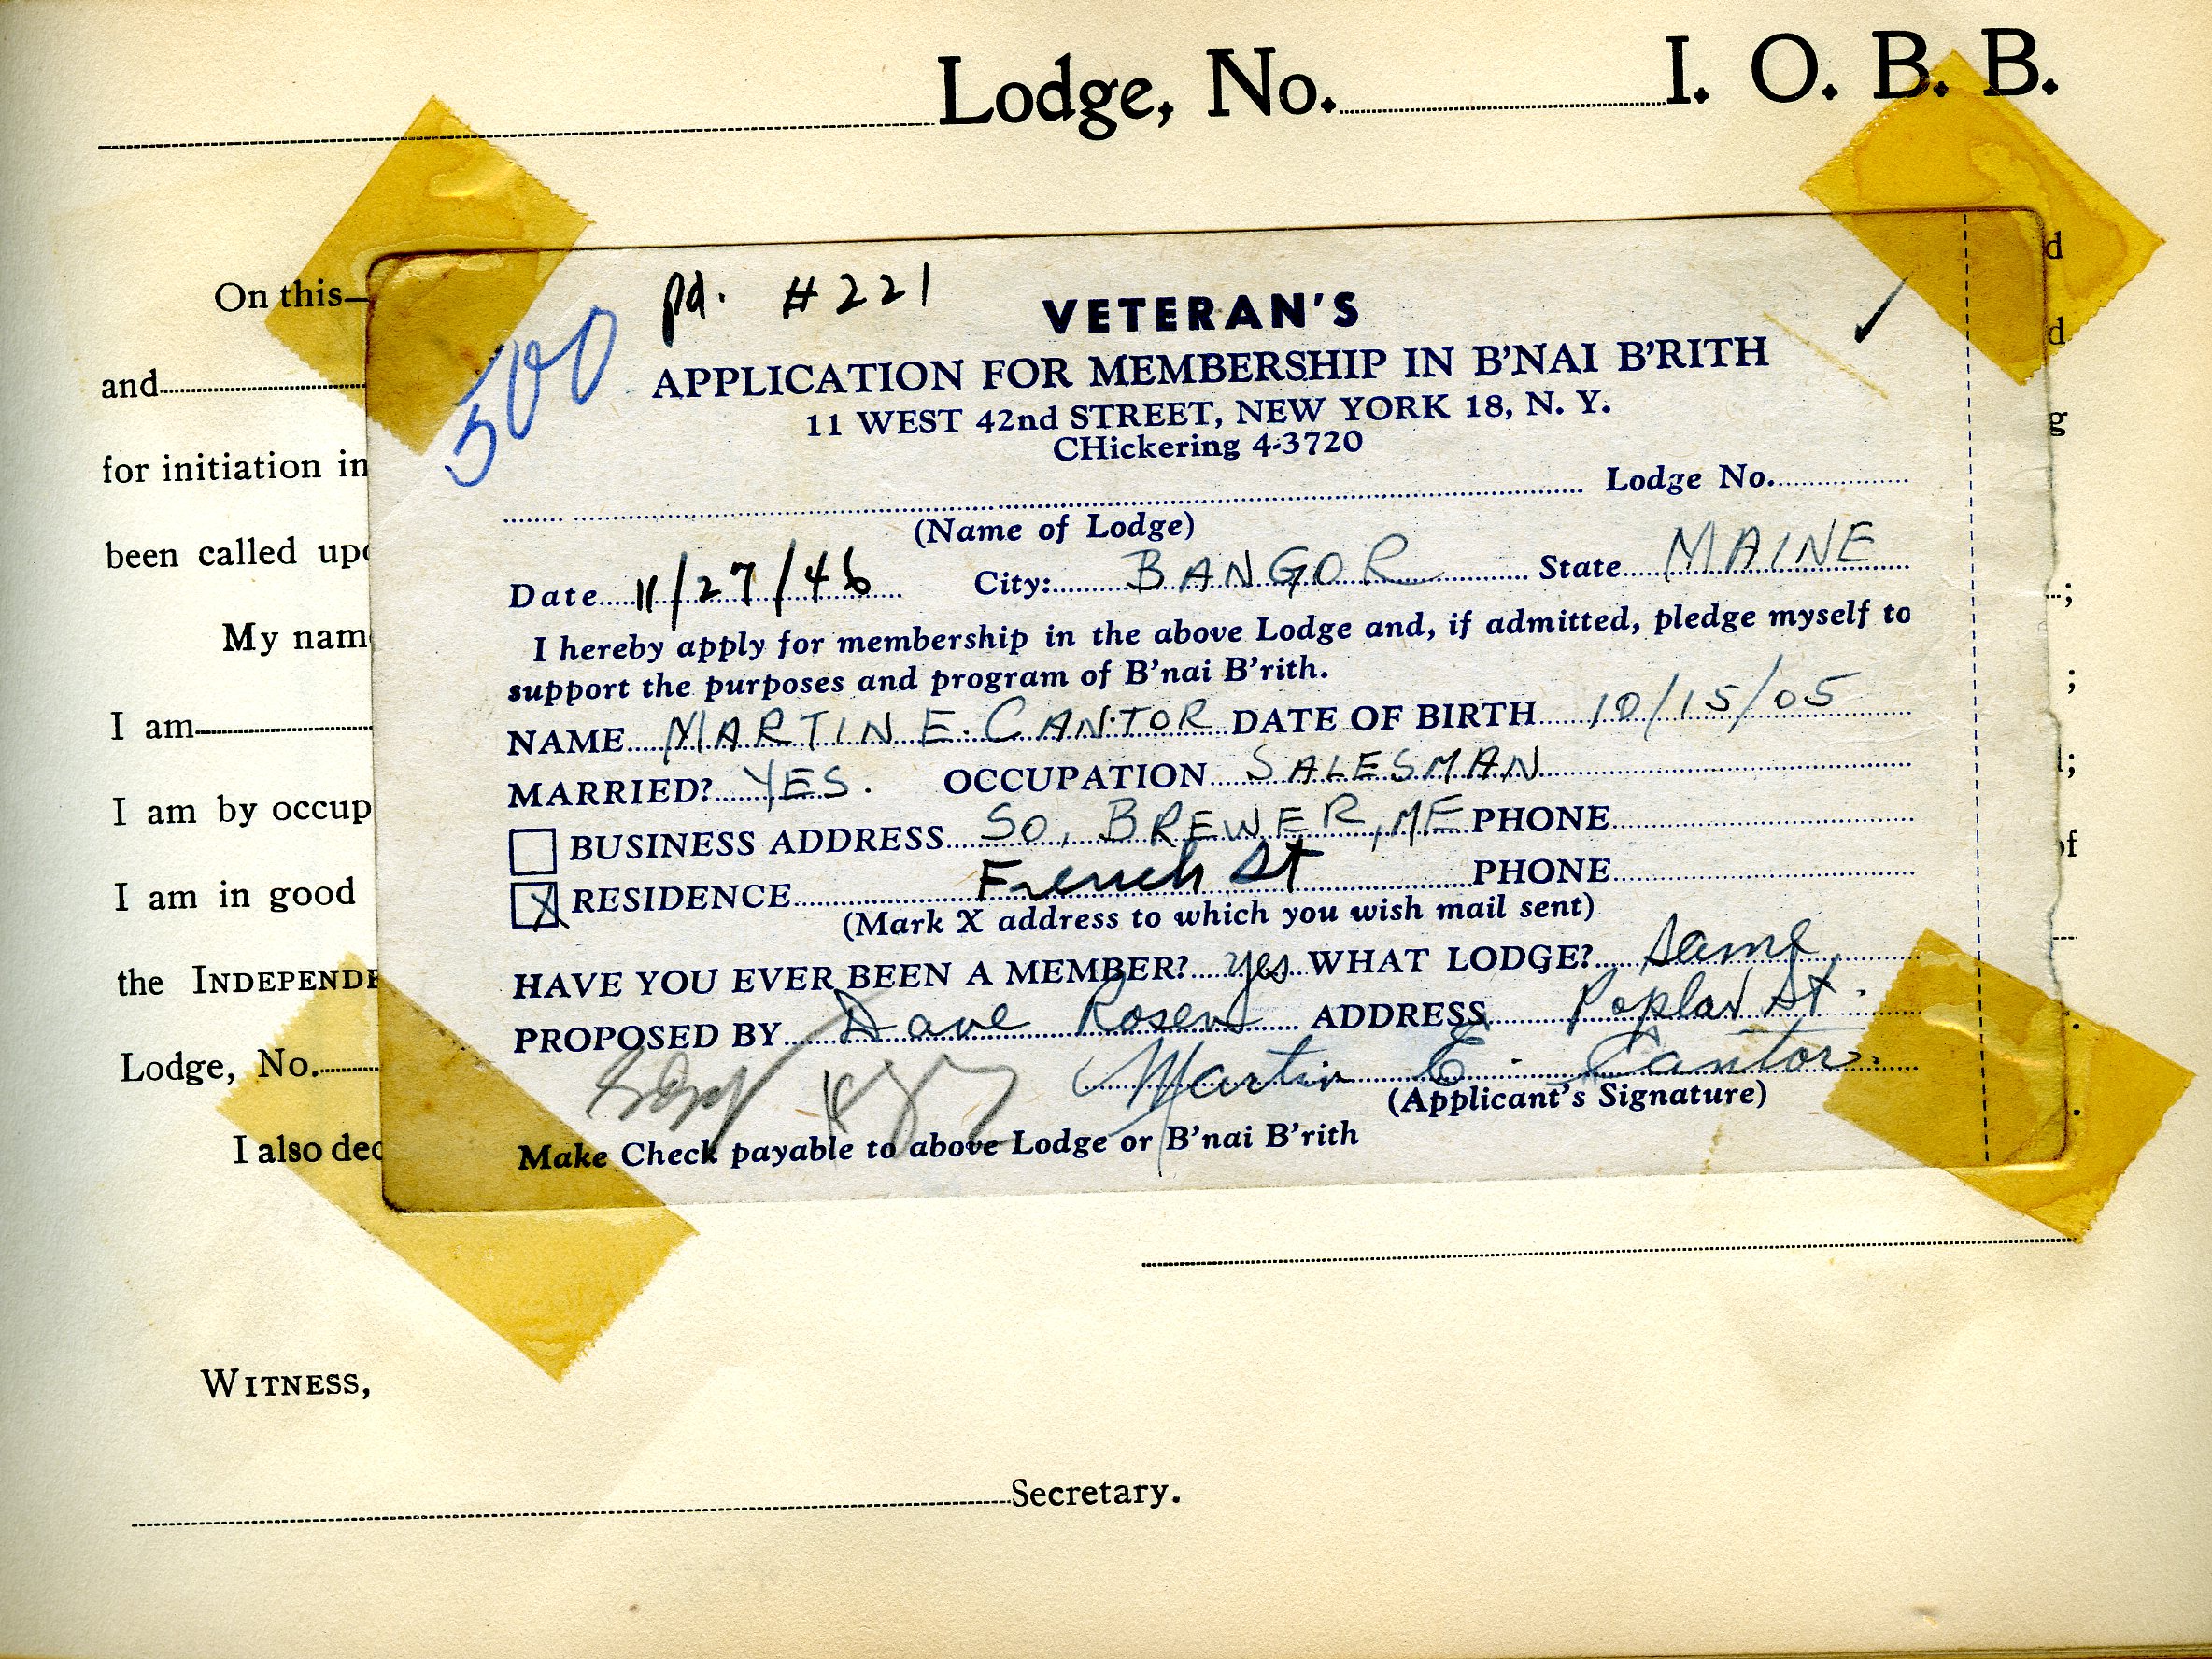 Lodge, No. I. O. B. B.
On this
and
for initiation in
been called upo
My nam
I am
I am by occup
I am in good
the INDEPENDE
Lodge, No.
I also dec
WITNESS,
Secretary.
d
d
g
;
;
;
of
pd. #221
500
VETERAN'S
APPLICATION FOR MEMBERSHIP IN B'NAI B'RITH
11 WEST 42nd STREET, NEW YORK 18, N. Y.
CHickering 4-3720
Lodge No.
(Name of Lodge)
Date 11/27/46 City: BANGOR State MAINE
I hereby apply for membership in the above Lodge and, if admitted, pledge myself to
support the purposes and program of B'nai B'rith.
NAME MARTIN E. CANTOR DATE OF BIRTH 10/15/05
MARRIED? YES. OCCUPATION SALESMAN
BUSINESS ADDRESS SO. BREWER, ME PHONE
X RESIDENCE French St PHONE
(Mark X address to which you wish mail sent)
HAVE YOU EVER BEEN A MEMBER? yes WHAT LODGE? Same
PROPOSED BY Dave Rosen ADDRESS Poplar St.
Martin E. Cantor
(Applicant's Signature)
Make Check payable to above Lodge or B'nai B'rith